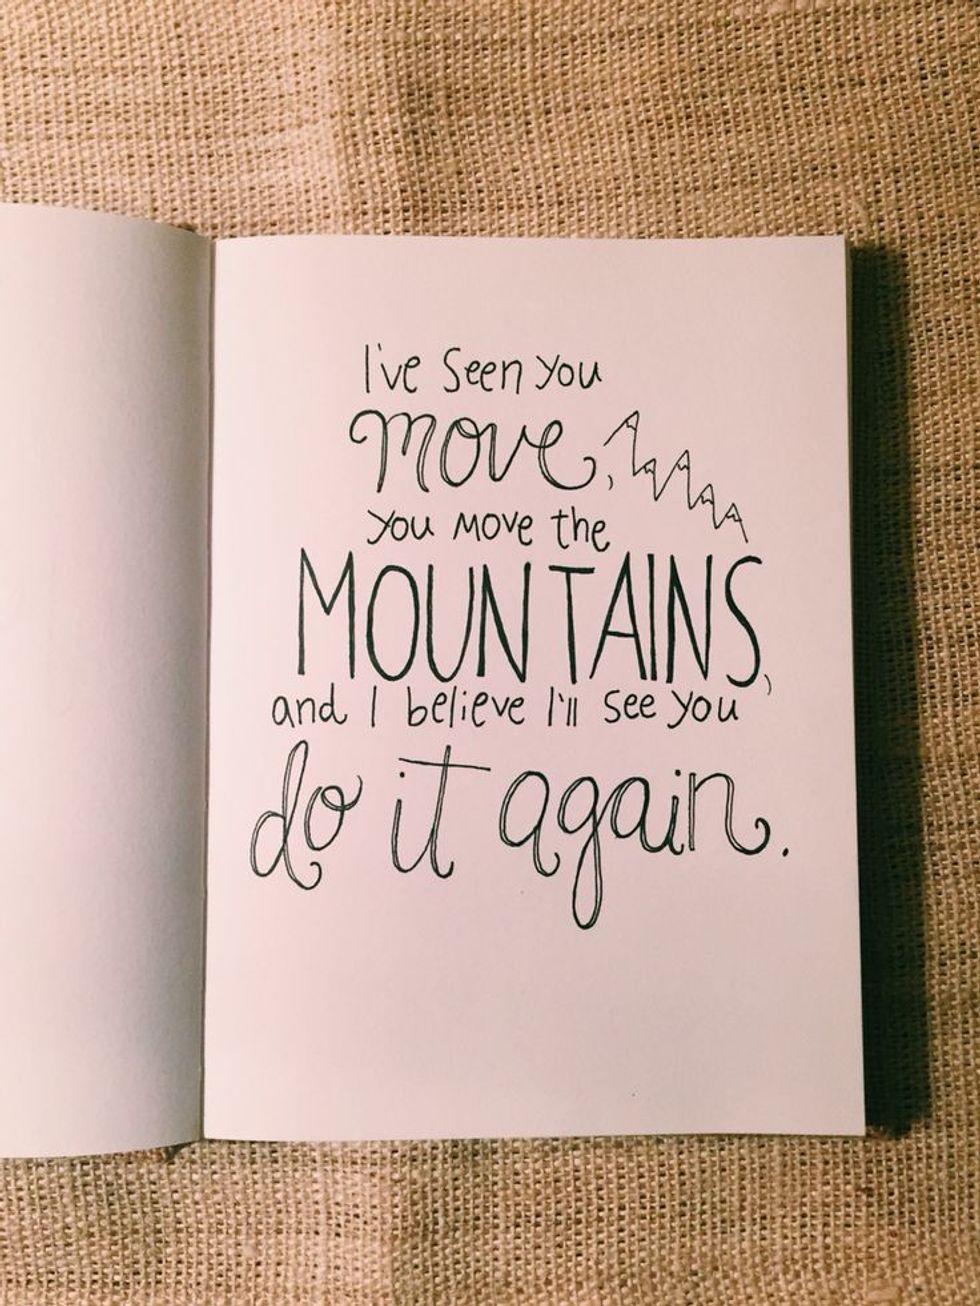 I've seen you
move,
you move the
MOUNTAINS,
and I believe I'll see you
do it again.